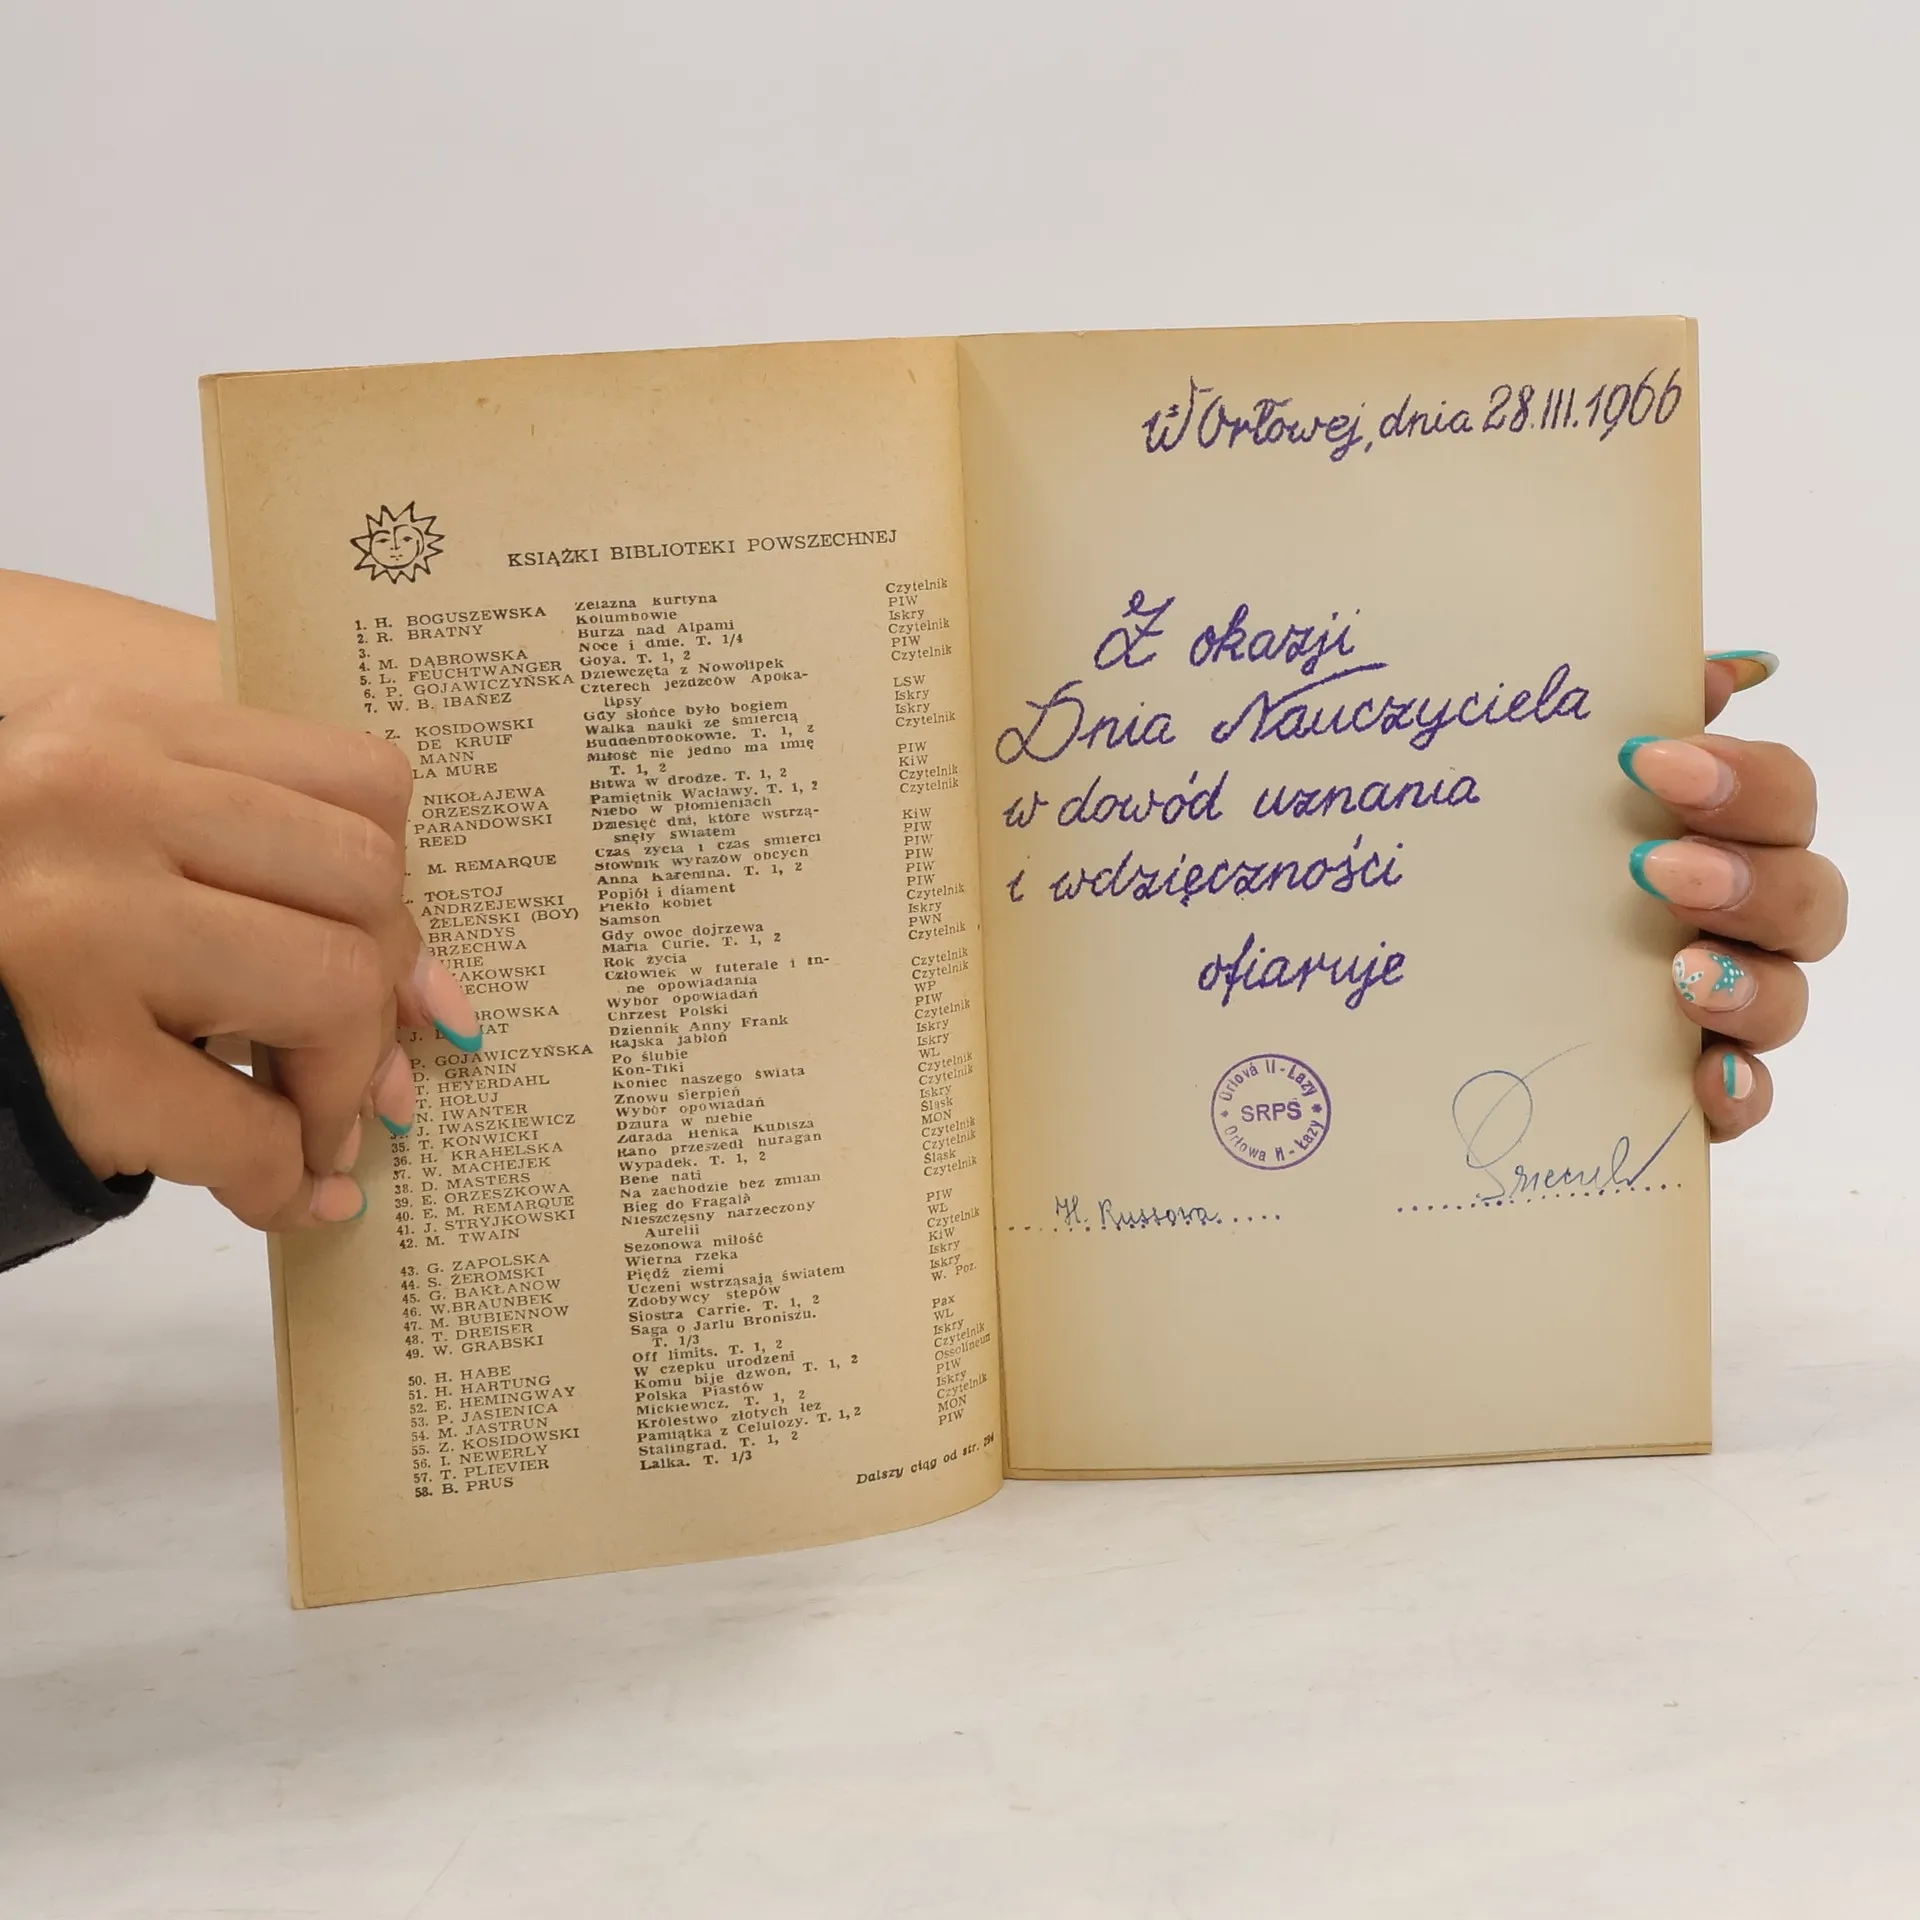 KSIĄŻKI BIBLIOTEKI POWSZECHNEJ
1. H. BOGUSZEWSKA Żelazna kurtyna Czytelnik
2. R. BRATNY Kolumbowie PIW
3. Burza nad Alpami Iskry
4. M. DĄBROWSKA Noce i dnie. T. 1/4 Czytelnik
5. L. FEUCHTWANGER Goya. T. 1, 2 PIW
6. P. GOJAWICZYŃSKA Dziewczęta z Nowolipek Czytelnik
7. W. B. IBAÑEZ Czterech jeźdźców Apoka-
lipsy LSW
Z. KOSIDOWSKI Gdy słońce było bogiem Iskry
DE KRUIF Walka nauki ze śmiercią Iskry
MANN Buddenbrookowie. T. 1, 2 Czytelnik
LA MURE Miłość nie jedno ma imię
T. 1, 2 PIW
NIKOŁAJEWA Bitwa w drodze. T. 1, 2 KiW
ORZESZKOWA Pamiętnik Wacławy. T. 1, 2 Czytelnik
PARANDOWSKI Niebo w płomieniach Czytelnik
REED Dziesięć dni, które wstrzą-
snęły światem KiW
M. REMARQUE Czas życia i czas śmierci PIW
Słownik wyrazów obcych PIW
L. TOŁSTOJ Anna Karenina. T. 1, 2 PIW
ANDRZEJEWSKI Popiół i diament PIW
ŻELEŃSKI (BOY) Piekło kobiet PIW
BRANDYS Samson Czytelnik
BRZECHWA Gdy owoc dojrzewa Iskry
URIE Maria Curie. T. 1, 2 PWN
ZAKOWSKI Rok życia Czytelnik
ECHOW Człowiek w futerale i in-
ne opowiadania Czytelnik
BROWSKA Wybór opowiadań Czytelnik
J. MAT Chrzest Polski WP
Dziennik Anny Frank PIW
P. GOJAWICZYŃSKA Rajska jabłoń Czytelnik
D. GRANIN Po ślubie Iskry
T. HEYERDAHL Kon-Tiki Iskry
T. HOŁUJ Koniec naszego świata WL
N. IWANTER Znowu sierpień Czytelnik
J. IWASZKIEWICZ Wybór opowiadań Czytelnik
35. T. KONWICKI Dziura w niebie Iskry
36. H. KRAHELSKA Zdrada Heńka Kubisza Śląsk
37. W. MACHEJEK Rano przeszedł huragan MON
38. D. MASTERS Wypadek. T. 1, 2 Czytelnik
39. E. ORZESZKOWA Bene nati Czytelnik
40. E. M. REMARQUE Na zachodzie bez zmian Śląsk
41. J. STRYJKOWSKI Bieg do Fragalà Czytelnik
42. M. TWAIN Nieszczęsny narzeczony
Aurelii PIW
43. G. ZAPOLSKA Sezonowa miłość WL
44. S. ŻEROMSKI Wierna rzeka Czytelnik
45. G. BAKŁANOW Piędź ziemi KiW
46. W.BRAUNBEK Uczeni wstrząsają światem Iskry
47. M. BUBIENNOW Zdobywcy stepów Iskry
48. T. DREISER Siostra Carrie. T. 1, 2 W. Poz.
49. W. GRABSKI Saga o Jarlu Broniszu.
T. 1/3 Pax
50. H. HABE Off limits. T. 1, 2 WL
51. H. HARTUNG W czepku urodzeni Iskry
52. E. HEMINGWAY Komu bije dzwon, T. 1, 2 Czytelnik
53. P. JASIENICA Polska Piastów Ossolineum
54. M. JASTRUN Mickiewicz. T. 1, 2 PIW
55. Z. KOSIDOWSKI Królestwo złotych łez Iskry
56. I. NEWERLY Pamiątka z Celulozy. T. 1,2 Czytelnik
57. T. PLIEVIER Stalingrad. T. 1, 2 MON
58. B. PRUS Lalka. T. 1/3 PIW
Dalszy ciąg od str. 294
W Orłowej, dnia 28.III.1966
Z okazji
Dnia Nauczyciela
w dowód uznania
i wdzięczności
ofiaruje
Orlová II-Lazy
SRPŠ
Orłowa II-Łazy
H. Russowa